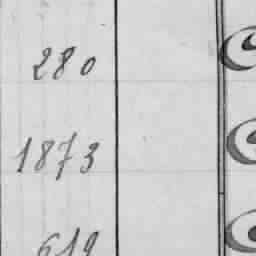 280
1873
619